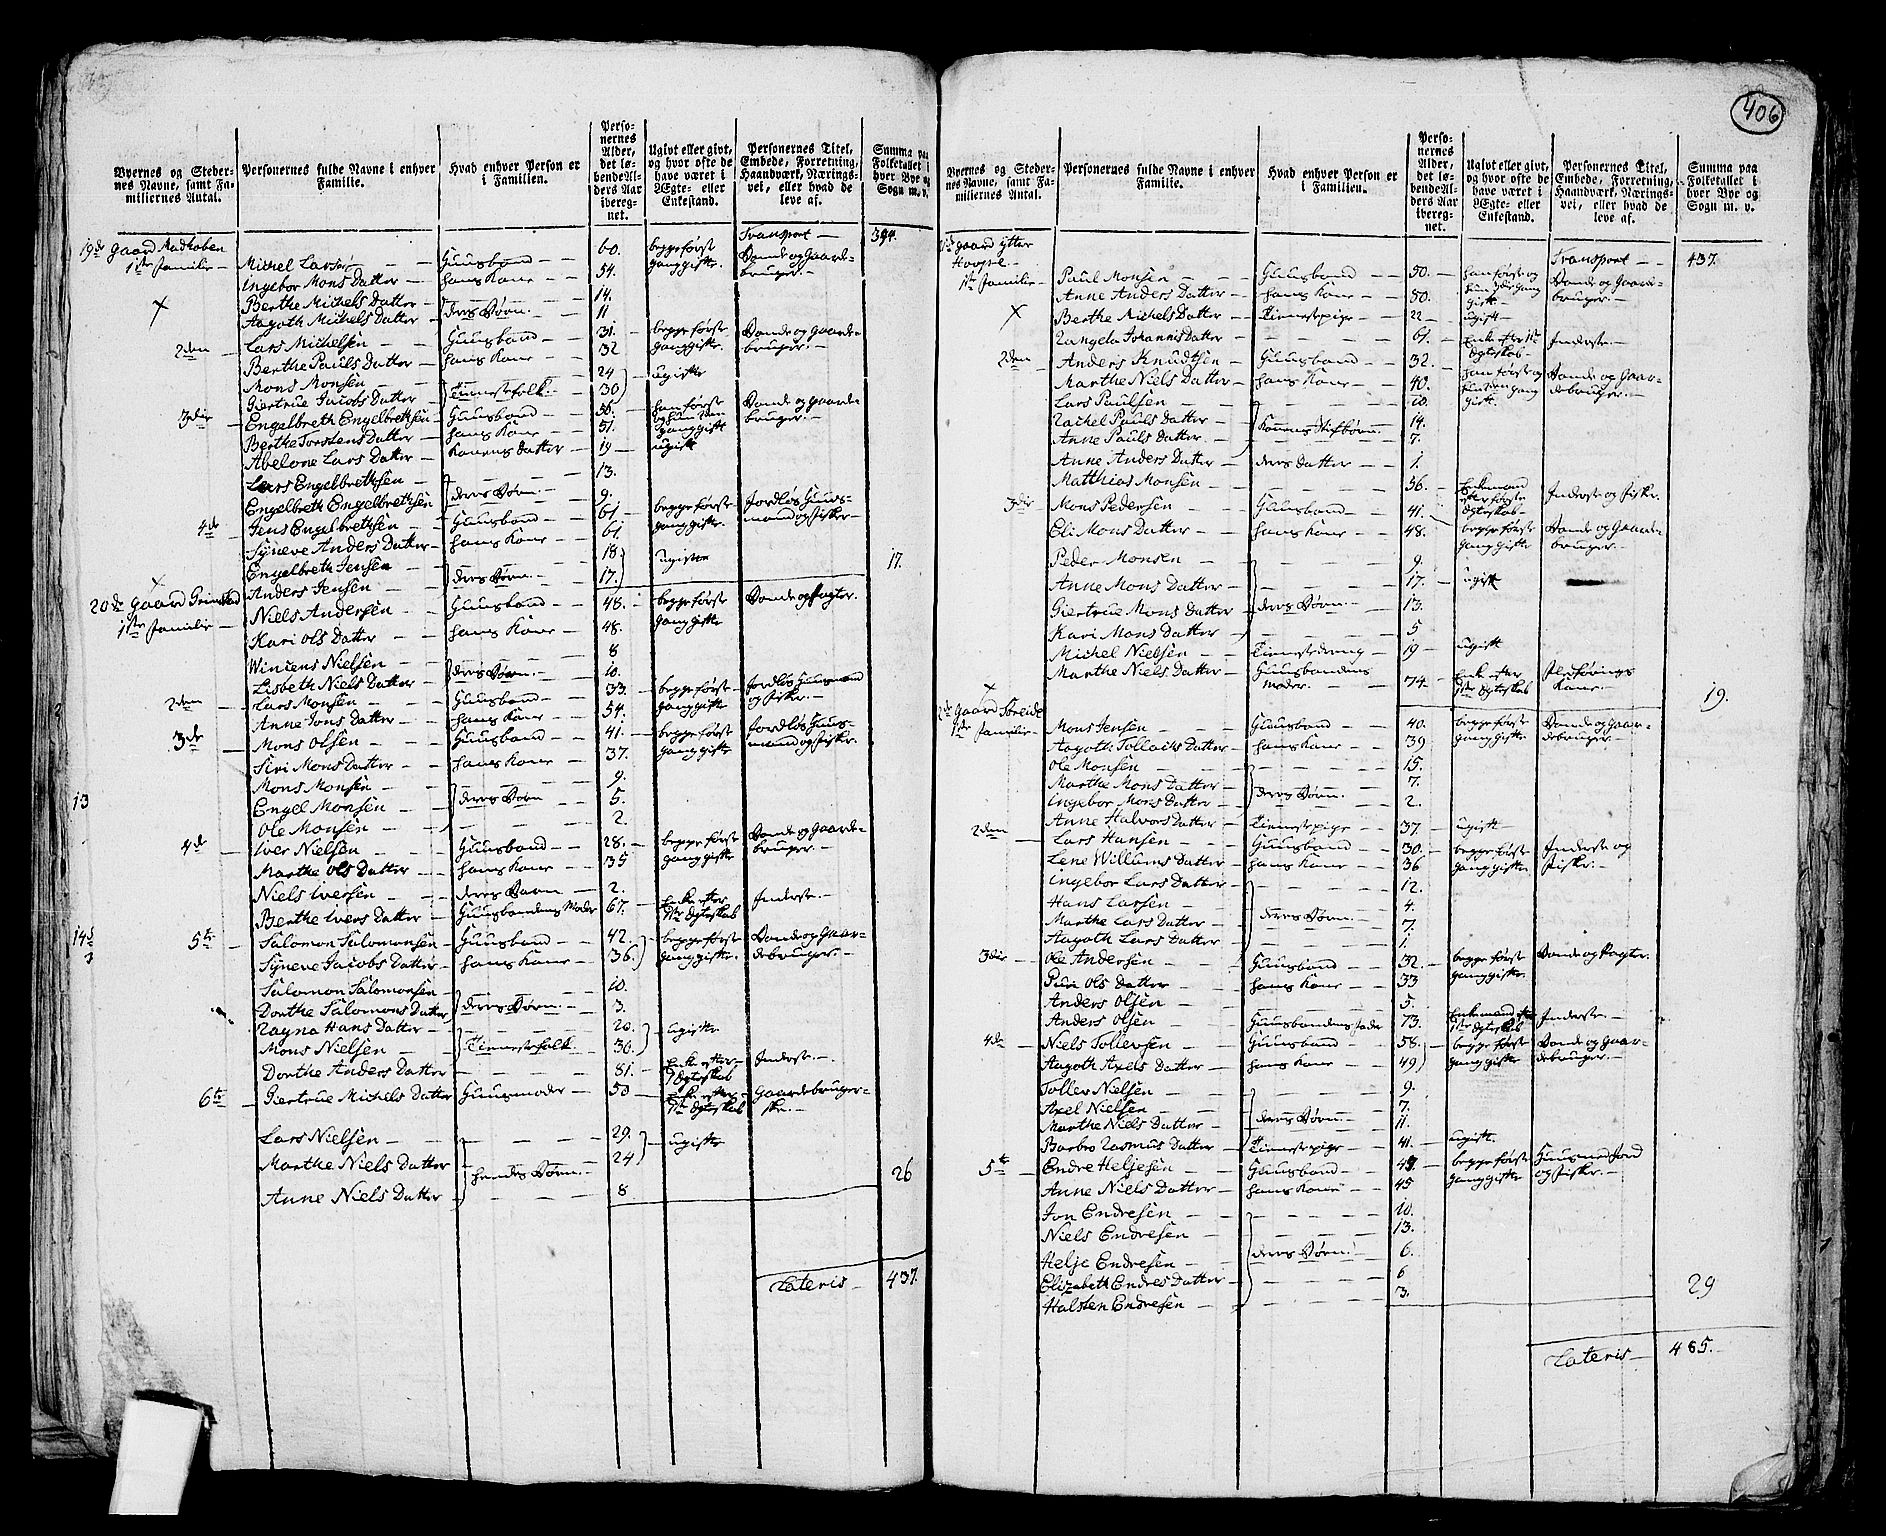 406
Byernes og Stedernes Navne, samt Familiernes Antal.
Personernes fulde Navne i enhver Familie.
Hvad enhver Person er i Familien.
Personernes Alder, det løbende Alders Aar iberegnet.
Ugivt eller givt, og hvor ofte de have været i Ægte- eller Enkestand.
Personernes Titel, Embede, Forretning, Haandværk, Næringsvei, eller hvad de leve af.
Summa paa Folketallet i hver Bye og Sogn m. v.
Transport — 394.
19de Gaard
1ste Familie — Michel Larsen — Huusbond — 60. begge første Bonde og Gaard-
Ingebor Mons Datter — hans Kone — 54. gang gifte. bruger. —
Berthe Michels Datter — 14.
Aagoth Michels Datter — deres Børn — 11
2den — Lars Michelsen — Huusbond — 31. begge første Bonde og Gaard-
Berthe Pauls Datter — hans Kone — 32 gang gifte. bruger. —
Mons Monsen — 24 ugifte
Giertrue Jacobs Datter — Tienestefolk — 30
3die — Engelbreth Engelbrethsen — Huusbond — 56. han første Bonde og Gaard-
Berthe Torstens Datter — hans Kone — 51. gang gift bruger. —
Abelone Lars Datter — Konens Datter — 19 — ugift
Lars Engelbrethsen — 13.
Engelbreth Engelbrethsen — deres Børn — 9.
4de — Jens Engelbrethsen — Huusbond — 61 — begge første Jordløs Huus-
Syneve Anders Datter — hans Kone — 61. gang gifte. mand og Fisker —
Engelbreth Jensen — 18. ugifte
Anders Jensen — deres Børn — 17. 17.
20de Gaard Grimstad
1ste Familie — Niels Andersen — Huusbond — 48. begge første Bonde og
Kari Ols Datter — hans Kone — 48. gang gifte
Wincens Nielsen — 8
Lisbeth Niels Datter — deres Børn — 10.
2den — Lars Monsen — Huusbond — 33. begge første Jordløs Huusmand
Anne Jons Datter — hans Kone — 54. gang gifte og Fisker. —
3de — Mons Olsen — Huusbond — 41. begge første Jordløs Huus-
Siri Mons Datter — hans Kone — 37. gang gifte mand og Fisker.
Mons Monsen — 9.
13
Engel Monsen — deres Børn — 5.
Ole Monsen — 2.
4de — Iver Nielsen — Huusbond — 28. begge første Bonde og Gaard-
Marthe Ols Datter — hans Kone — 35 gang gifte bruger. —
Niels Iversen — deres Barn — 2.
Berthe Ivers Datter — Huusbondens Moder 67. Enke efter 1ste Ægteskab Inderste. —
5te — Salomon Salomonsen — Huusbond — 42. begge første Bonde og Gaar-
Syneve Jacobs Datter — hans Kone — 36. gang gifte. debruger. —
Salomon Salomonsen — 10.
Dorthe Salomons Datter — deres Børn — 3.
Ragna Hans Datter — 20. ugifte
Mons Nielsen — Tienestefolk — 30.
Dorthe Anders Datter — 81. Enke efter 1 Ægteskab Inderste. —
6te — Giertrue Michels Datter Huusmoder — 50 Enke efter 1ste Ægteskab Gaardebruger-
ske. —
Lars Nielsen — 29. ugifte
Marthe Niels Datter — hendes Børn — 24
Anne Niels Datter — 8 26
Lateris — 437.
Byernes og Stedernes Navne, samt Familiernes Antal.
Personernes fulde Navne i enhver Familie.
Hvad enhver Person er i Familien.
Personernes Alder, det løbende Alders Aar iberegnet.
Ugivt eller givt, og hvor ofte de have været i Ægte- eller Enkestand.
Personernes Titel, Embede, Forretning, Haandværk, Næringsvei, eller hvad de leve af.
Summa paa Folketallet i hver Bye og Sogn m. v.
Transport — 437.
Gaard Ytter
1ste Familie — Paul Monsen — Huusbond — 50. han første og Bonde og Gaard-
Anne Anders Datter — hans Kone — 50. gift — bruger. —
Berthe Michels Datter — Tienestepige — 22 — ugift —
Johannis Datter — 61. Enke efter 1ste Ægteskab. Inderste. —
2den — Anders Knudtsen — Huusbond — 32. han første og Bonde og Gaar-
Marthe Niels Datter — hans Kone — 40. gang gift. debruger. —
Lars Paulsen — 10.
Rachel Pauls Datter — Konens Stifbørn — 14.
Anne Pauls Datter — 7.
Anne Anders Datter — deres Datter — 1.
Matthias Monsen — 56. Enkemand efter første Ægteskab. Inderste og Fisker.
3die — Mons Pedersen — Huusbond — 41. begge første Bonde og Gaard-
Eli Mons Datter — hans Kone — 48. gang gifte bruger. —
Peder Monsen — 9.
Anne Mons Datter — 17. ugift
Giertrue Mons Datter — deres Børn — 13.
Kari Mons Datter — 5
Michel Nielsen — Tienestedreng — 19 — ugift
Marthe Niels Datter — Huusbondens Moder — 74 — Enke efter 1ste Ægteskab Kone. — 19.
Gaard Søreide
1ste Familie — Mons Jensen — Huusbond — 40. begge første Bonde og Gaar-
Aagoth Tollachs Datter — hans Kone — 39 gang gifte debruger —
Ole Monsen — 15.
Marthe Mons Datter — deres Børn — 7.
Ingebor Mons Datter — 2.
Anne Halvors Datter — Tienestepige — 37. ugift —
2den — Lars Hansen — Huusbond — 30. begge første Inderste og
Lene Willums Datter — hans Kone — 36 gang gifte. Fisker. —
Ingebor Lars Datter — 12.
Hans Larsen — 4.
Marthe Lars Datter — deres Børn — 7.
Aagoth Lars Datter — 1.
3die — Ole Andersen — Huusbond — 32. begge første Bonde og
Ols Datter — hans Kone — 33 gang gifte.
Anders Olsen — 5.
Anders Olsen — Huusbondens Fader 73. Enkemand efter 1ste Ægteskab Inderste. —
4de — Niels Tollevsen — Huusbond — 58. begge første Bonde og Gaar-
Aagoth Axels Datter — hans Kone — 49 gang gifte debruger. —
Tollev Nielsen — 9.
Axel Nielsen — 7.
Marthe Niels Datter — deres Børn — 11.
Barbro Rasmus Datter — Tienestepige — 41. ugift.
5te — Endre Heljesen — Huusbond — begge første Huusmed Jord
Anne Niels Datter — hans Kone — 45 gang gifte og Fisker. —
Jon Endresen — 10.
Niels Endresen — 13.
Helje Endresen — deres Børn — 6.
Elizabeth Endres Datter — 6
Halsten Endresen — 3. 29
Lateris — 485.